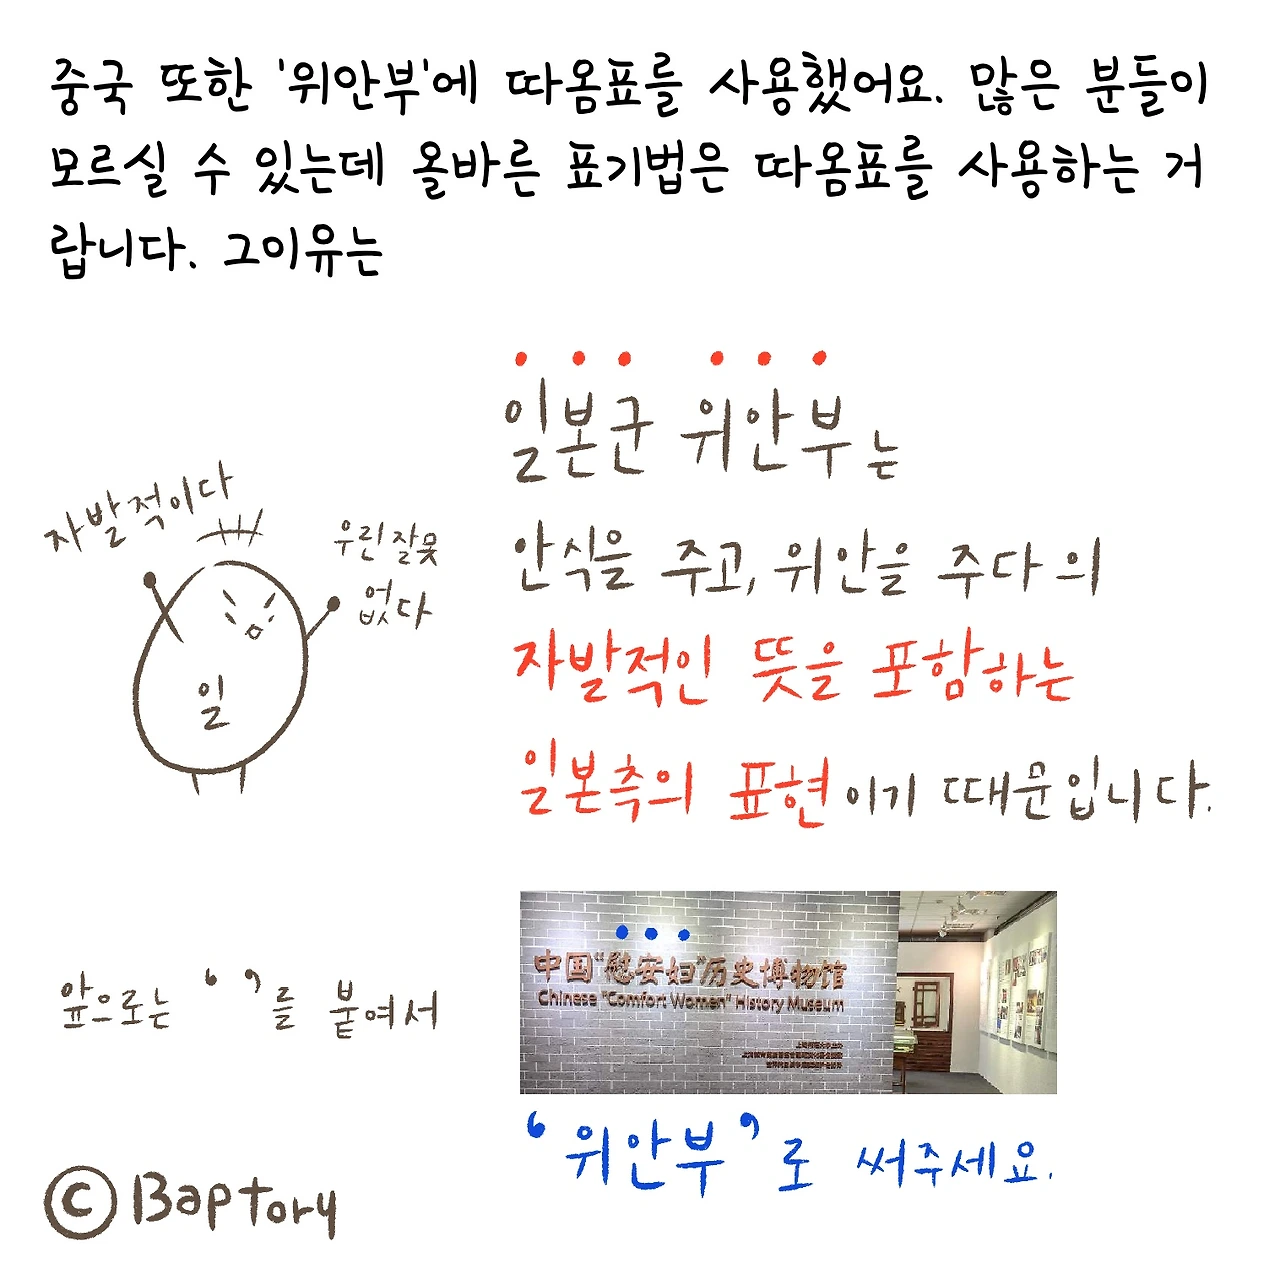 중국 또한 '위안부'에 따옴표를 사용했어요. 많은 분들이
모르실 수 있는데 올바른 표기법은 따옴표를 사용하는 거
랍니다. 그이유는
일본군 위안부는
자발적이다
우린잘못
없다
안식을 주고, 위안을 주다의
자발적인 뜻을 포함하는
일
일본측의 표현이기 때문입니다.
中国“慰安妇”历史博物馆
Chinese "Comfort Women" History Museum
앞으로는 ‘ ’를 붙여서
‘위안부’로 써주세요.
© Baptory